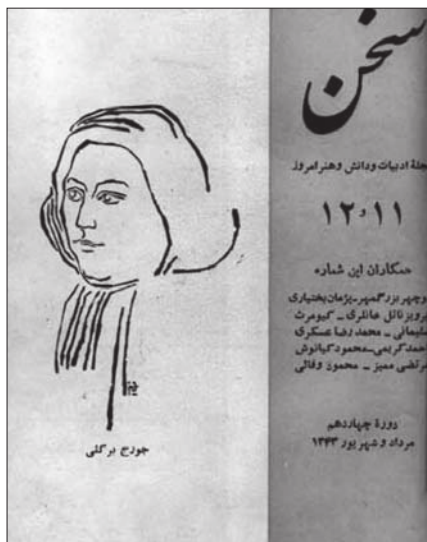 سخن
مجله ادبیات ودانش وهنر امروز
۱۲،۱۱
همکاران این شماره
وچهر بزرگمهر ـ پژمان بختیاری
پرویز ناتل خانلری ـ کیومرث
سلیمانی ـ محمد رضا عسکری
احمد کریمی ـ محمود کیانوش
مرتضی ممیز ـ محمود وفائی
دورهٔ چهاردهم
مرداد و شهریور ۱۳۴۳
جورج برکلی